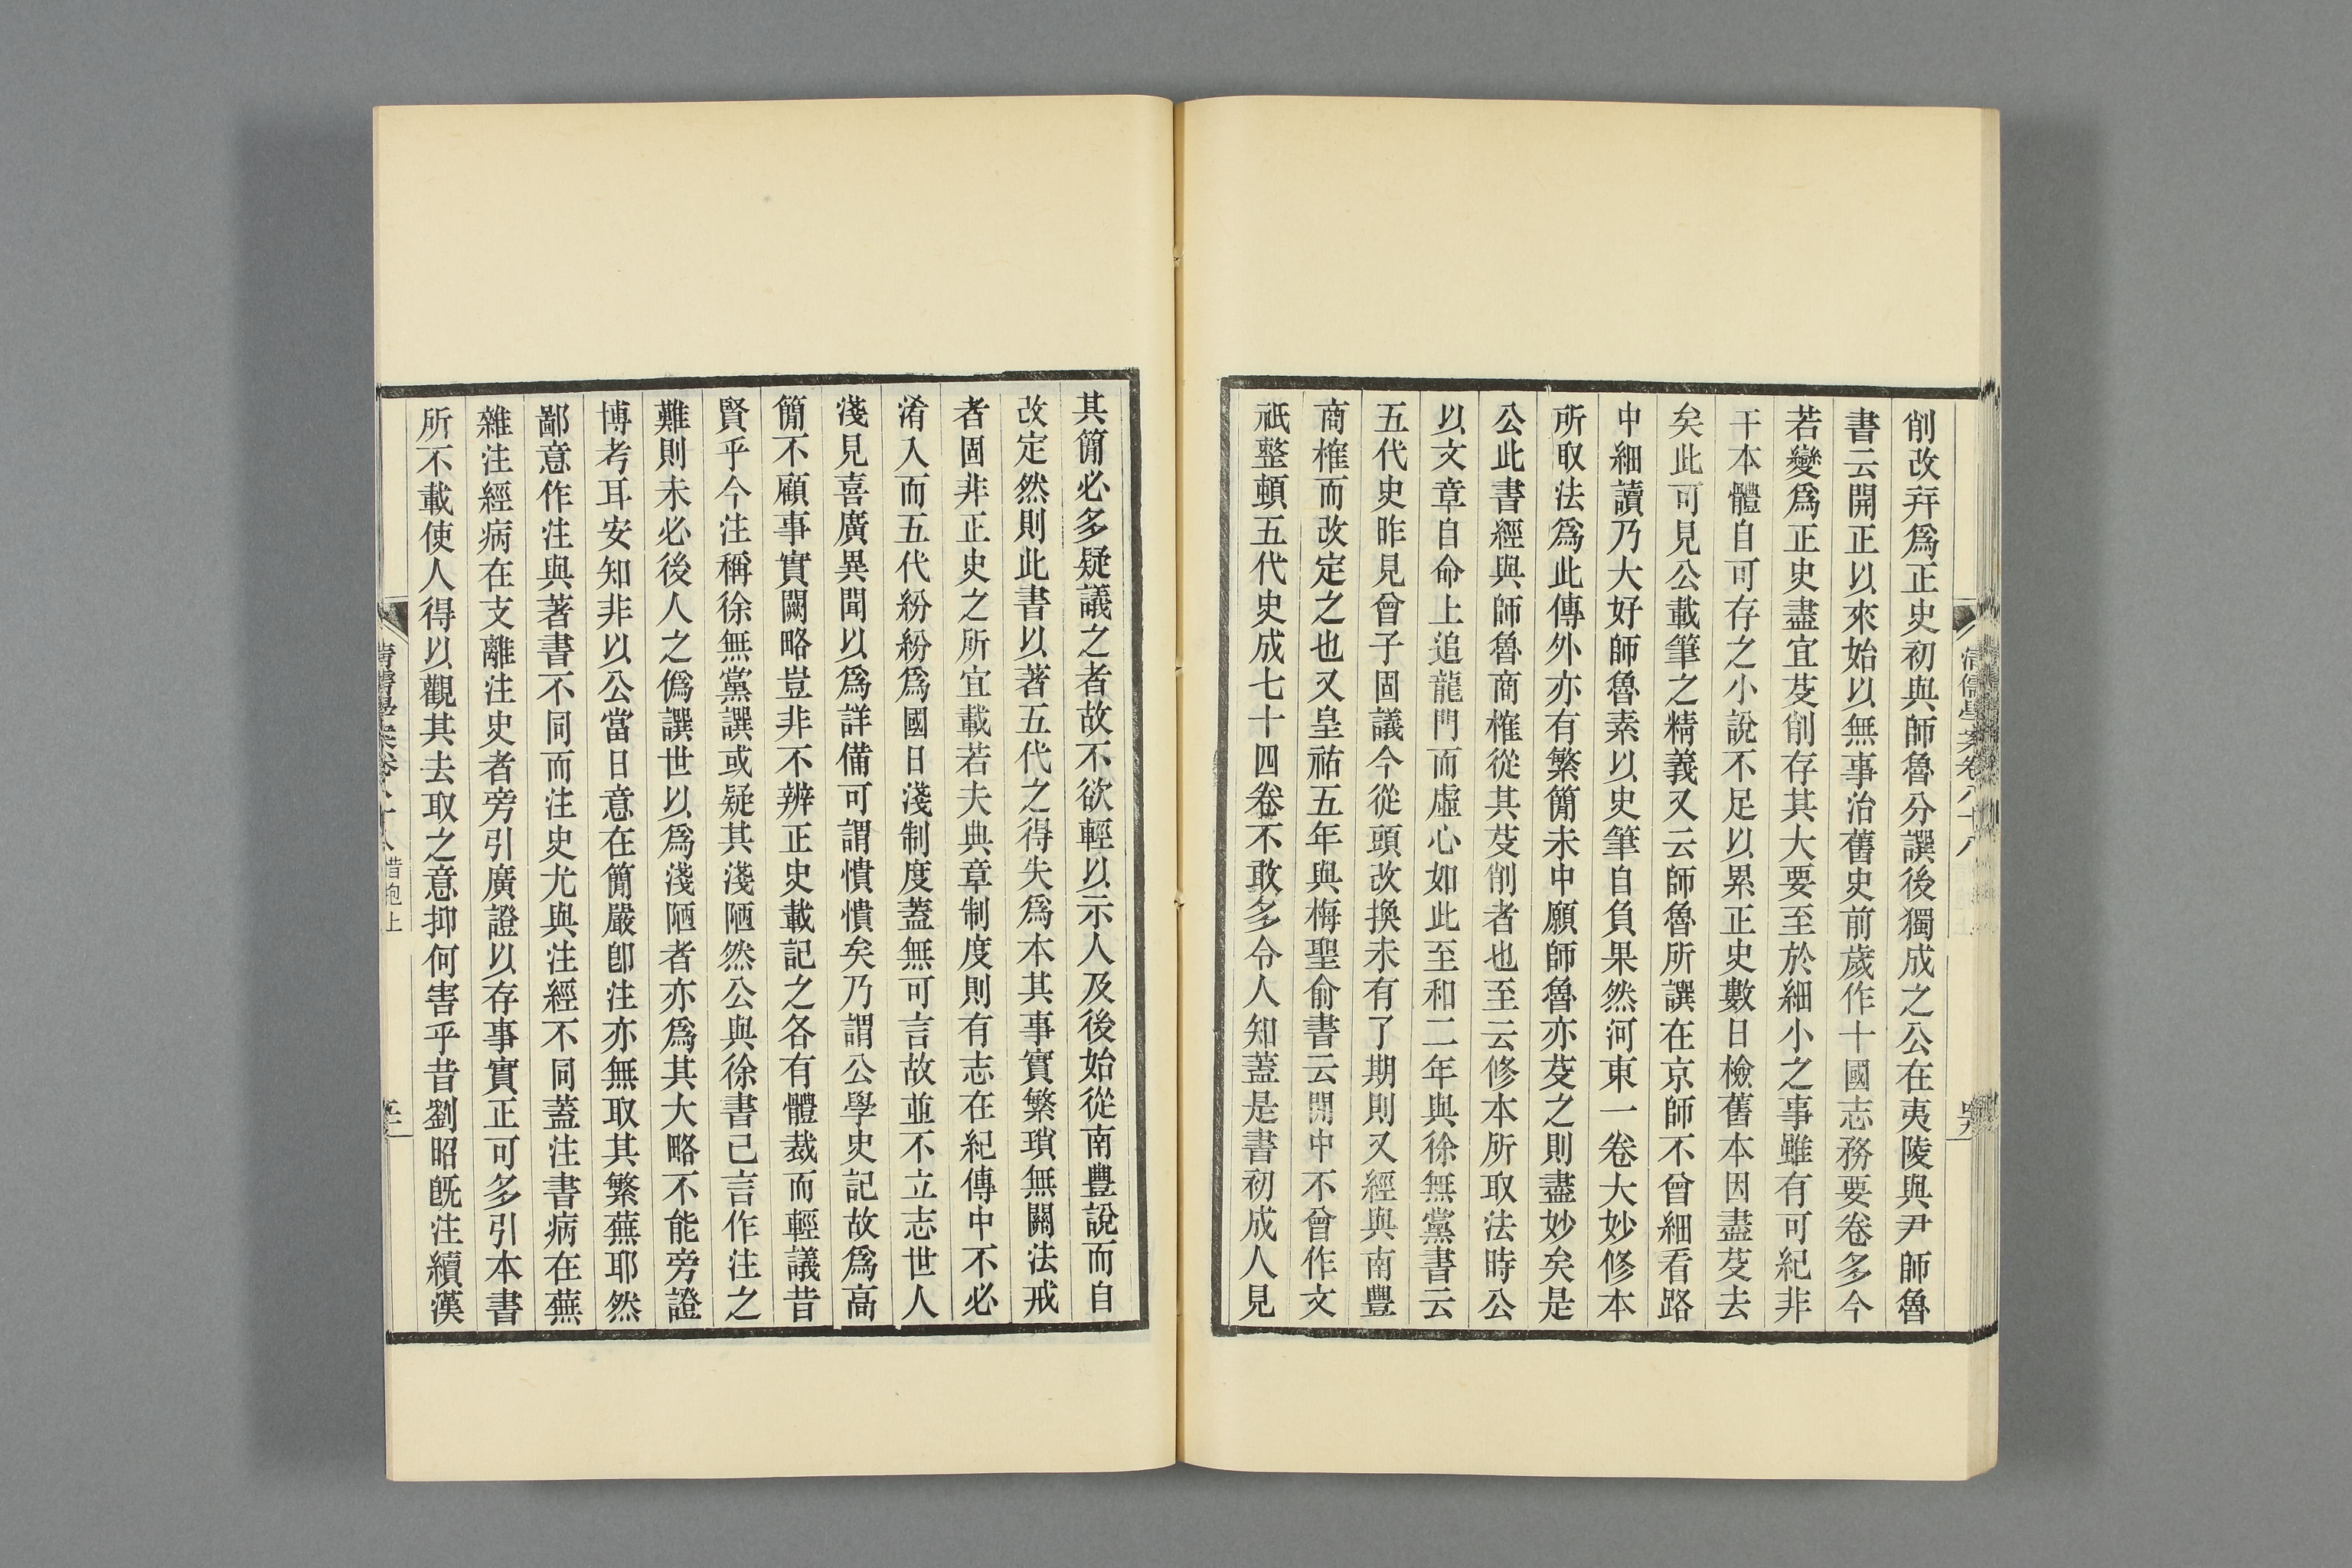 削改幷爲正史初與師魯分譔後獨成之公在夷陵與尹師魯
書云開正以來始以無事治舊史前歲作十國志務要卷多今
若變爲正史盡宜芟削存其大要至於細小之事雖有可紀非
干本體自可存之小說不足以累正史數日檢舊本因盡芟去
矣此可見公載筆之精義又云師魯所譔在京師不曾細看路
中細讀乃大好師魯素以史筆自負果然河東一卷大妙修本
所取法爲此傳外亦有繁簡未中願師魯亦芟之則盡妙矣是
公此書經與師魯商榷從其芟削者也至云修本所取法時公
以文章自命上追龍門而虛心如此至和二年與徐無黨書云
五代史昨見曾子固議今從頭改換未有了期則又經與南豐
商榷而改定之也又皇祐五年與梅聖俞書云閒中不曾作文
祇整頓五代史成七十四卷不敢多令人知蓋是書初成人見
其簡必多疑議之者故不欲輕以示人及後始從南豐說而自
改定然則此書以著五代之得失爲本其事實繁瑣無關法戒
者固非正史之所宜載若夫典章制度則有志在紀傳中不必
淆入而五代紛紛爲國日淺制度蓋無可言故並不立志世人
淺見喜廣異聞以爲詳備可謂憒憒矣乃謂公學史記故爲高
簡不顧事實闕略豈非不辨正史載記之各有體裁而輕議昔
賢乎今注稱徐無黨譔或疑其淺陋然公與徐書已言作注之
難則未必後人之僞譔世以爲淺陋者亦爲其大略不能旁證
博考耳安知非以公當日意在簡嚴卽注亦無取其繁蕪耶然
鄙意作注與著書不同而注史尤與注經不同蓋注書病在蕪
雜注經病在支離注史者旁引廣證以存事實正可多引本書
所不載使人得以觀其去取之意抑何害乎昔劉昭旣注續漢
清儒學案卷八十八 惜抱上